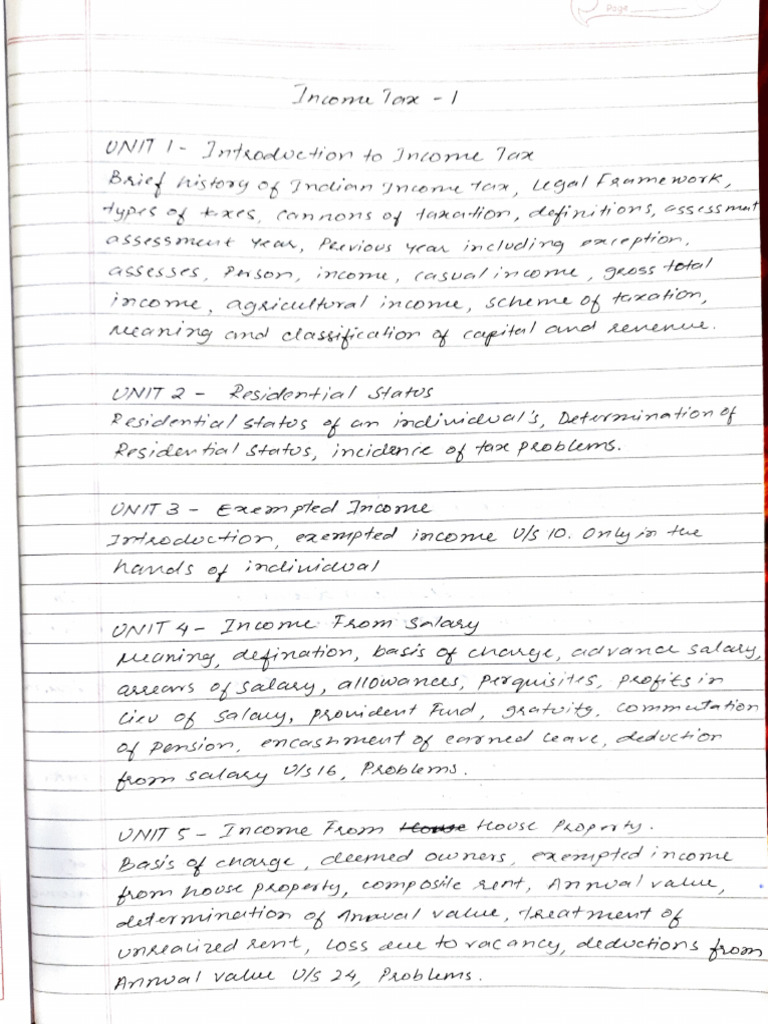 Page
Income Tax - 1
UNIT 1 - Introduction to Income Tax
Brief history of Indian Income tax, Legal Framework,
types of taxes, cannons of taxation, definitions, assessment
assessment Year, Previous year including exception,
assesses, Person, income, casual income, gross total
income, agricultural income, scheme of taxation,
Meaning and classification of capital and revenue.
UNIT 2 - Residential Status
Residential status of an individual's, Determination of
Residential Status, incidence of tax problems.
UNIT 3 - Exempted Income
Introduction, exempted income U/s 10. Only in the
hands of individual
UNIT 4 - Income From Salary
Meaning, defination, basis of charge, advance salary,
arrears of salary, allowances, perquisites, profits in
lieu of salary, provident Fund, gratuity, commutation
of pension, encashment of earned leave, deduction
from salary U/s 16, Problems.
UNIT 5 - Income From House House Property.
Basis of charge, deemed owners, exempted income
from house property, composite rent, Annual value,
determination of Annual value, treatment of
unrealized rent, loss due to vacancy, deductions from
Annual value U/s 24, Problems.